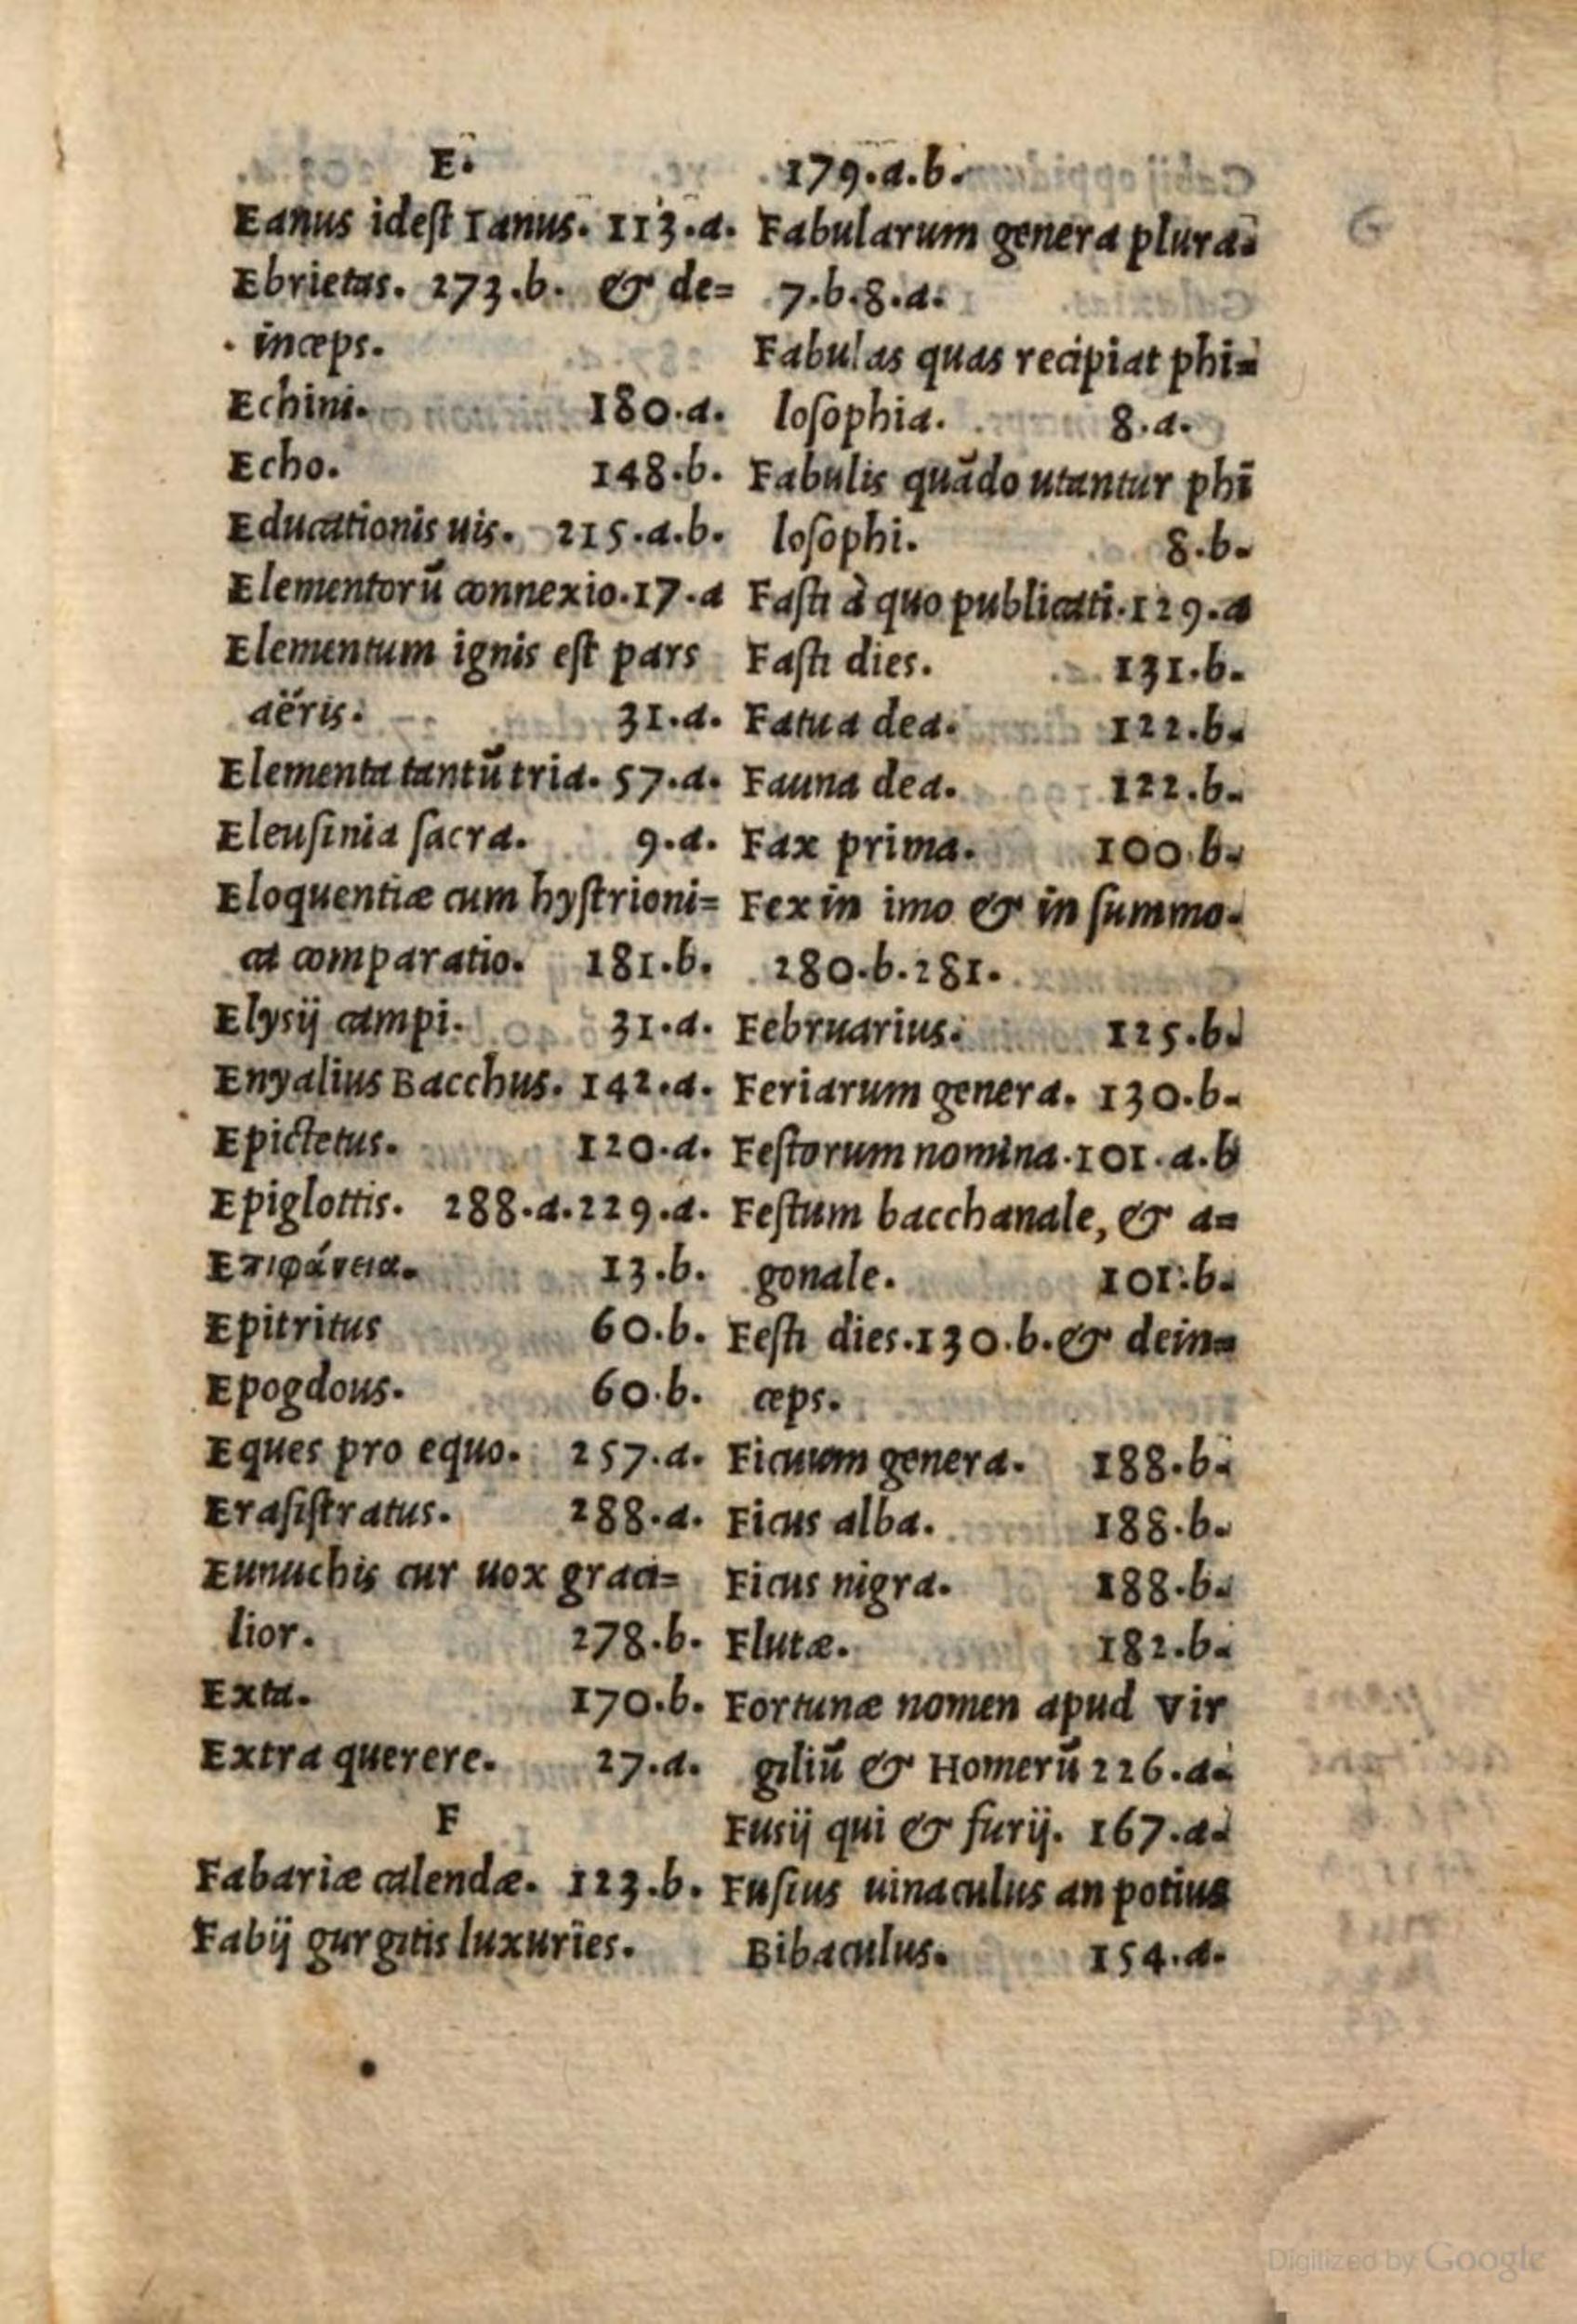 E.
Eanus idest Ianus. 113.a.
Ebrietas. 273.b. & de=
inceps.
Echini. 180.a.
Echo. 148.b.
Educationis uis. 215.a.b.
Elementorū connexio.17.a
Elementum ignis est pars
aëris. 31.a.
Elementa tantū tria. 57.a.
Eleuſinia ſacra. 9.a.
Eloquentiæ cum hyſtrioni=
ca comparatio. 181.b.
Elysij campi. 31.a.
Enyalius Bacchus. 142.a.
Epictetus. 120.a.
Epiglottis. 288.a.229.a.
Επιφάνεια. 13.b.
Epitritus 60.b.
Epogdous. 60.b.
Eques pro equo. 257.a.
Eraſiſtratus. 288.a.
Eunuchis cur uox graci=
lior. 278.b.
Exta. 170.b.
Extra querere. 27.a.
F
Fabariæ calendæ. 123.b.
Fabij gurgitis luxuries.
179.a.b.
Fabularum genera plura.
7.b.8.a.
Fabulas quas recipiat phi=
loſophia. 8.a.
Fabulis quādo utantur phi
loſophi. 8.b.
Faſti à quo publicati.129.a
Faſti dies. 131.b.
Fatua dea. 122.b.
Fauna dea. 122.b.
Fax prima. 100.b.
Fex in imo & in ſummo.
280.b.281.
Februarius. 125.b.
Feriarum genera. 130.b.
Feſtorum nomina.101.a.b
Feſtum bacchanale, & a=
gonale. 101.b.
Feſti dies.130.b.& dein=
ceps.
Ficuum genera. 188.b.
Ficus alba. 188.b.
Ficus nigra. 188.b.
Flutæ. 182.b.
Fortunæ nomen apud Vir
giliū & Homerū 226.a.
Fusij qui & furij. 167.a.
Fuſius uinaculus an potius
Bibaculus. 154.a.
Digitized by Google